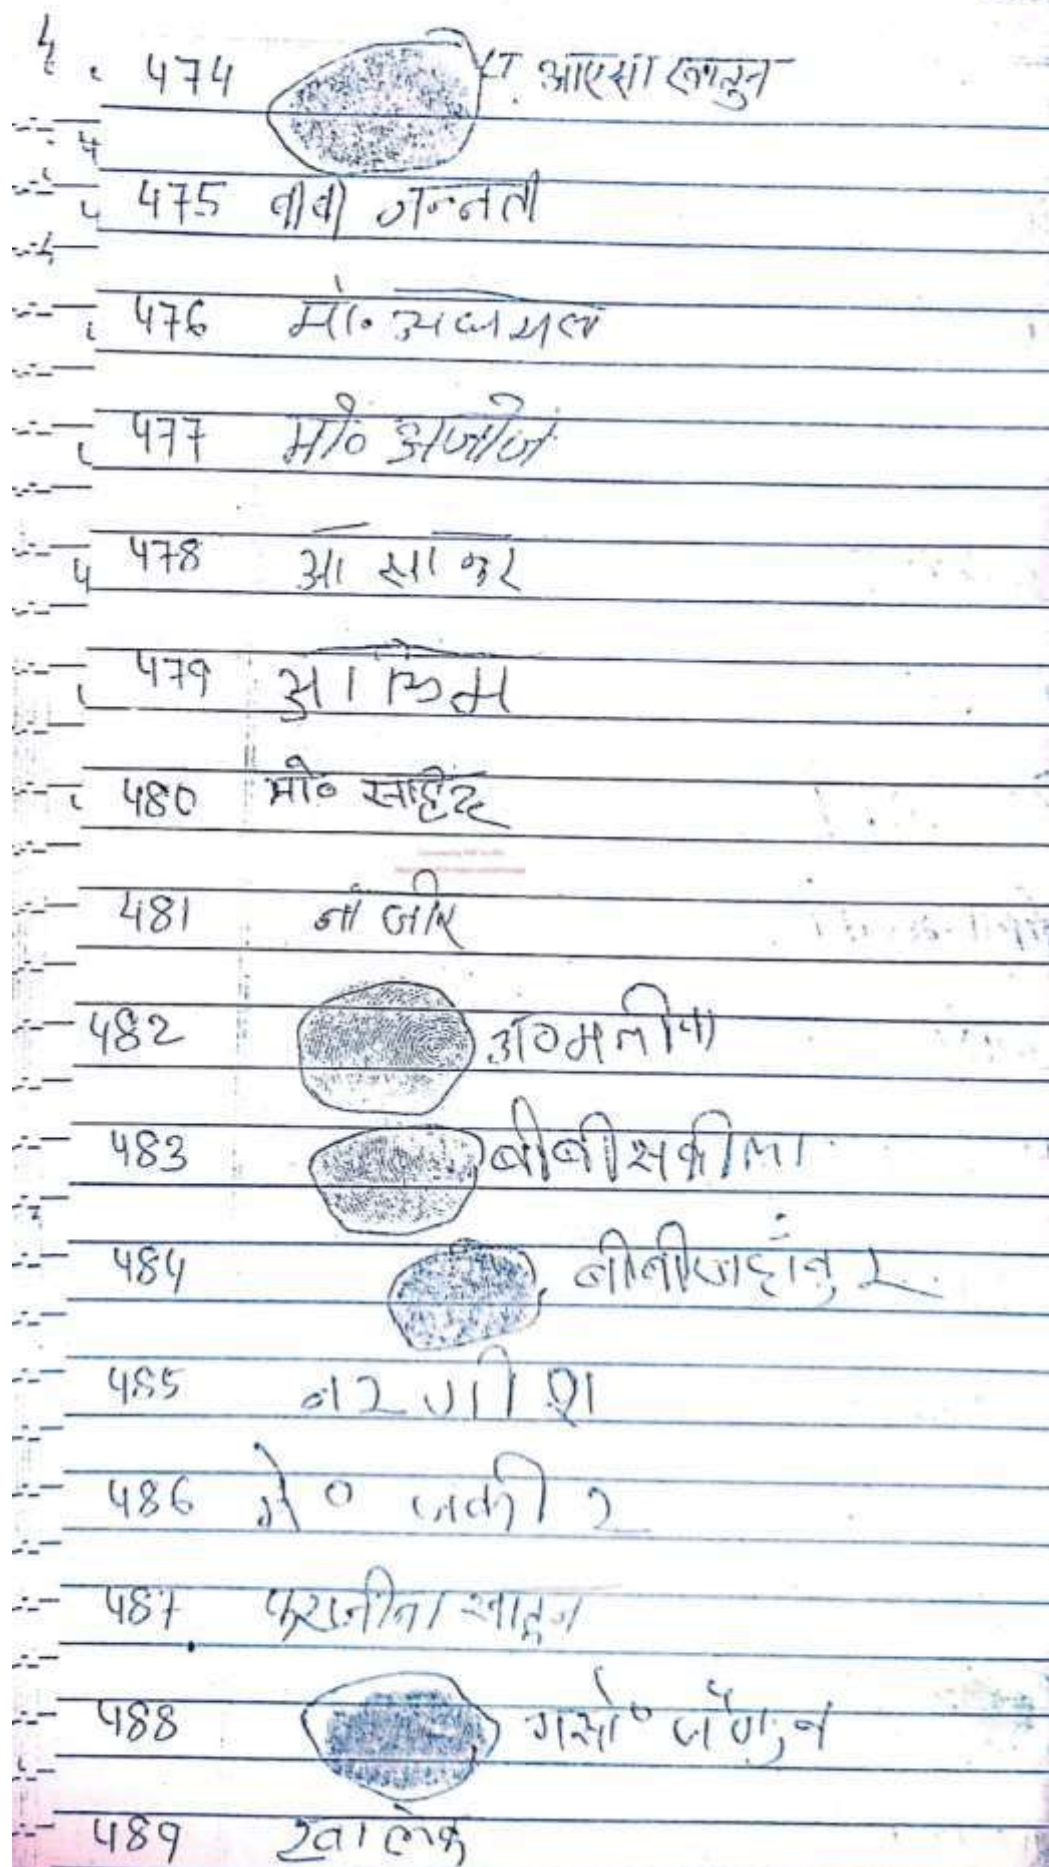 474 LT आएसा खातुन
475 बीबी जन्नती
476 मो०
477 मो० अजीज
478 आ सा कर
479 आकिम
480 मो० साहिद
481 नाजीर
482
483 बीबी सकीला
484 बीबी जहांनुर
485 नरगीश
486 मो० जकीर
487 खातुन
488 मसो० जैगुन
489 खालेक